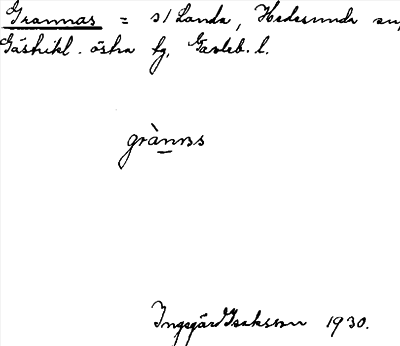 Grannas = s/ Landa, Hedesunda sn,
Gästrikl. östra tg, Gävleb. l.
grànnəs
Ingegärd Isaksson 1930.